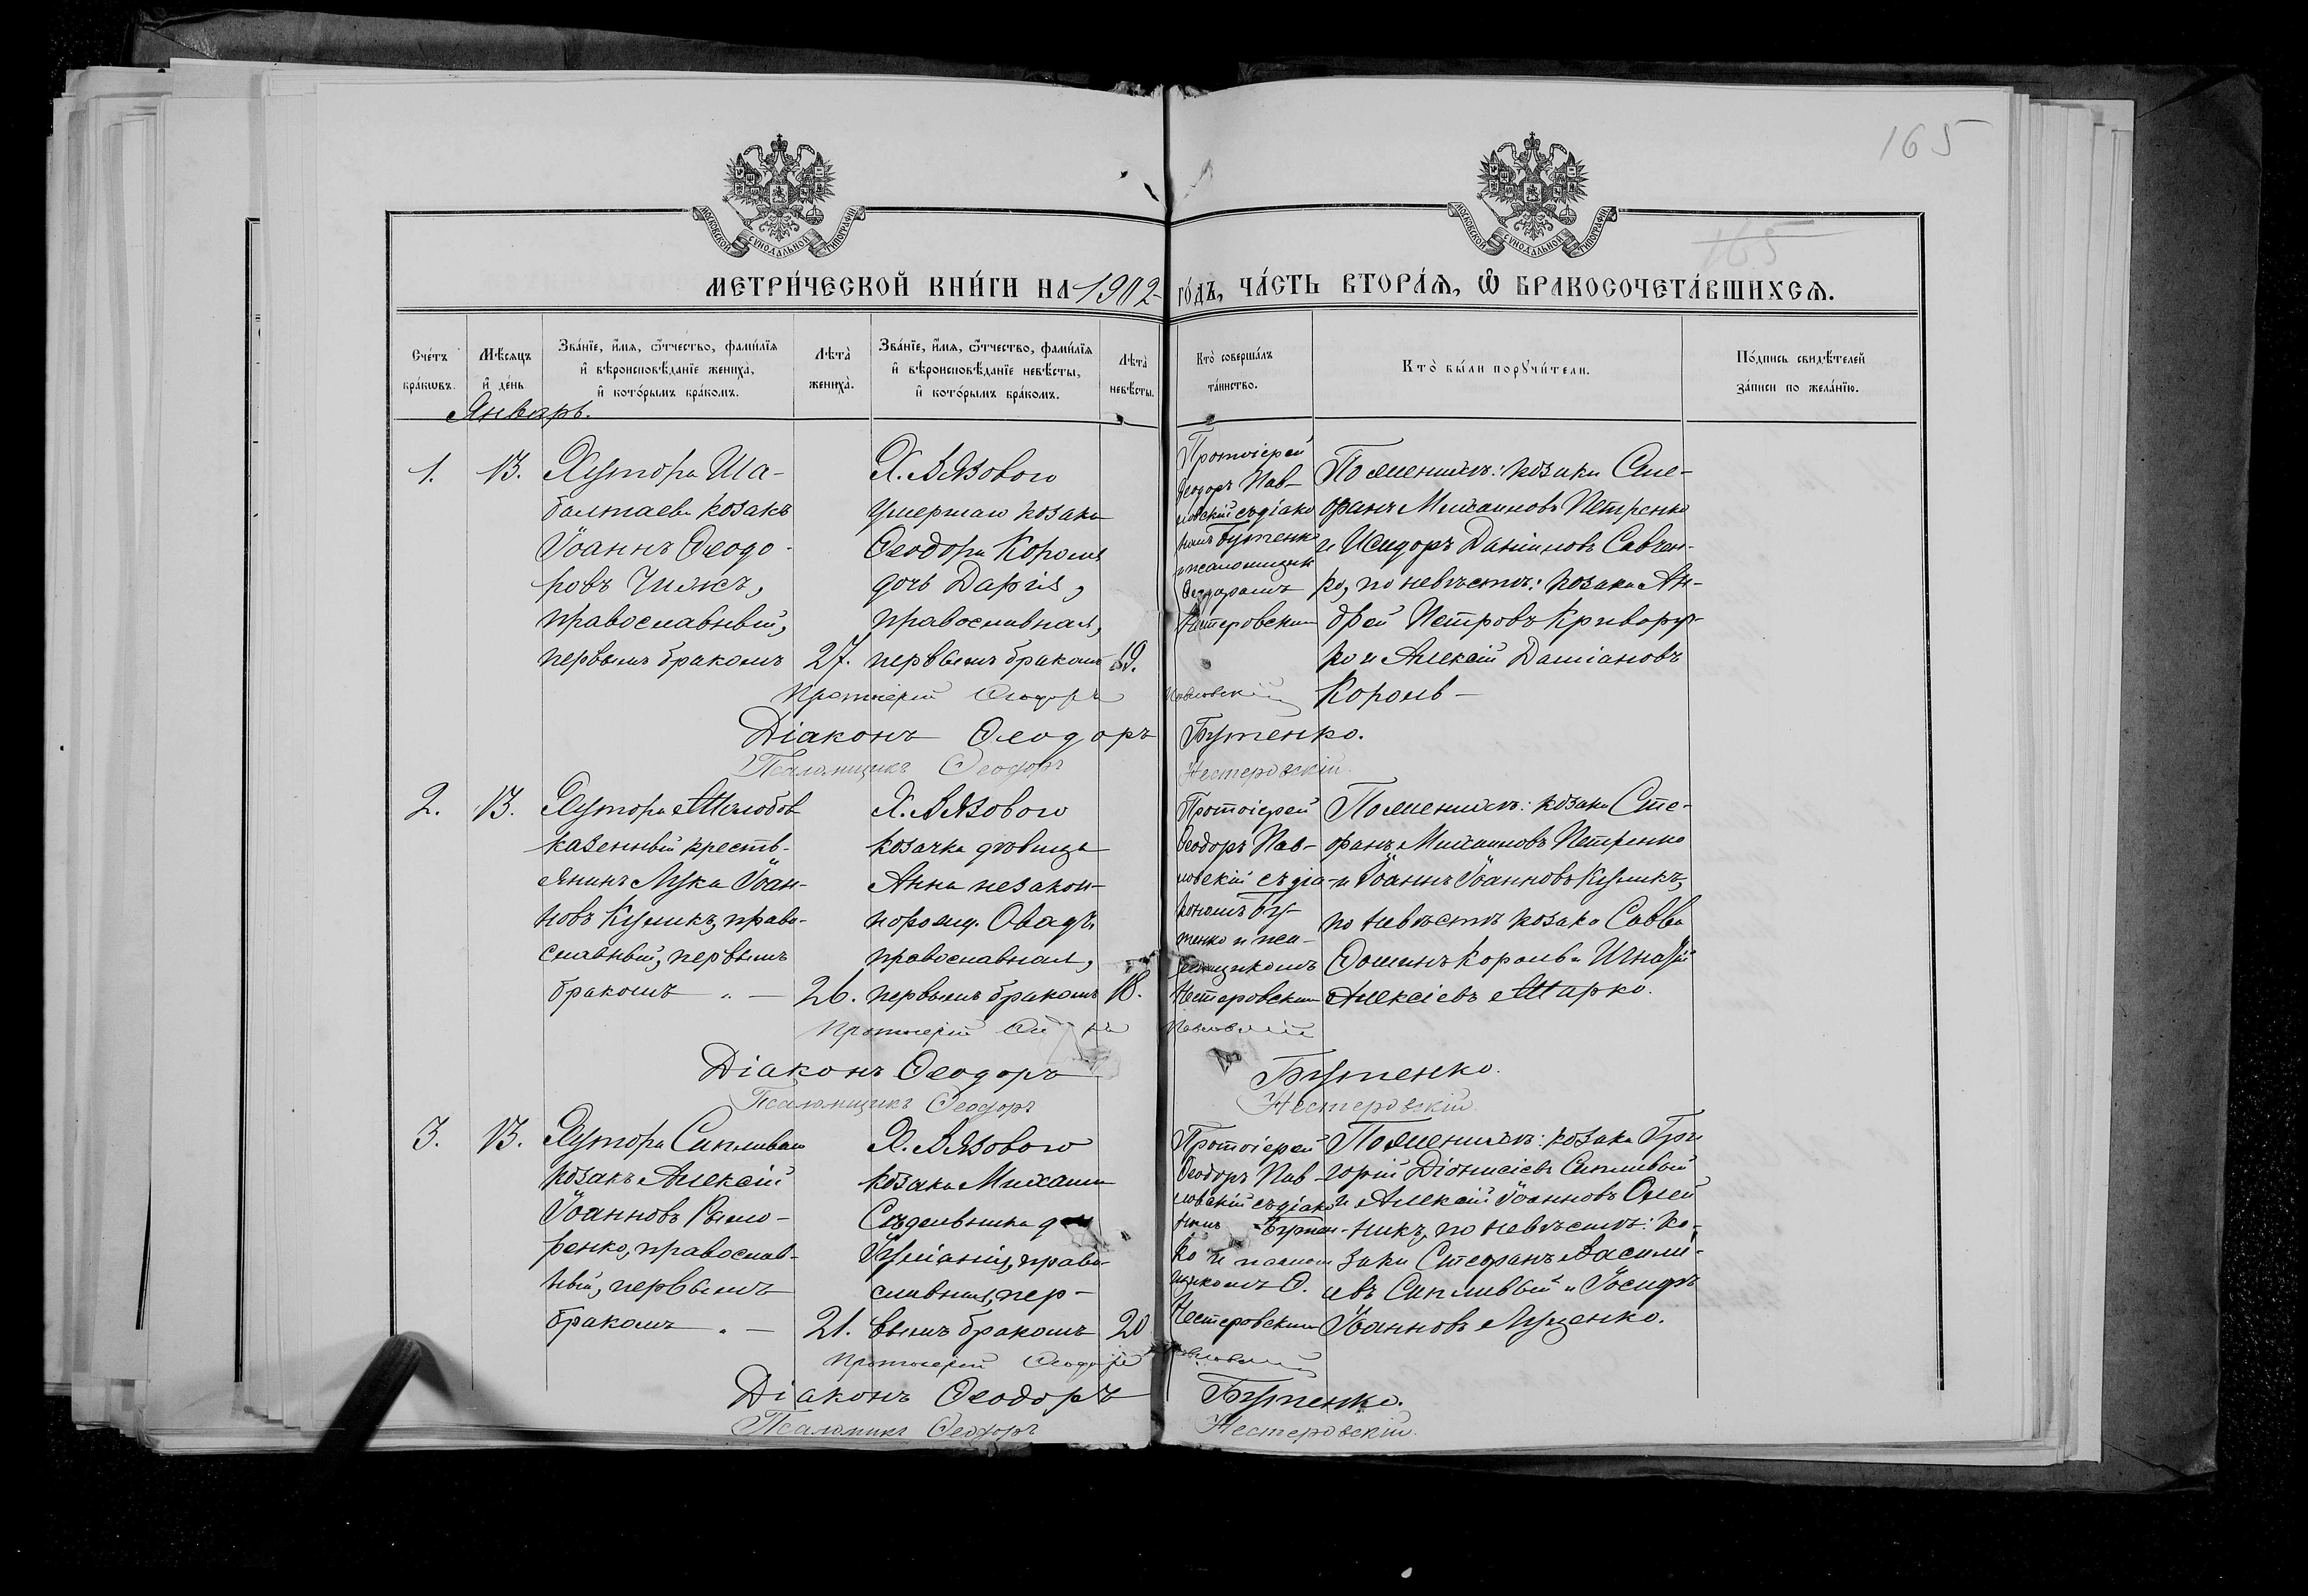 165
165
МОСКОВСКОЙ СѴНОДАЛЬНОЙ ТИПОГРАФІИ
МОСКОВСКОЙ СѴНОДАЛЬНОЙ ТИПОГРАФІИ
МЕТРИ́ЧЕСКОЙ КНИ́ГИ НА 1902 ГО́ДЪ, ЧА́СТЬ ВТОРА́Ѧ, Ѡ҆ БРАКОСОЧЕТА́ВШИХСѦ.
Сче́тъ
бра́кѡвъ.
Мѣ́сяцъ
и҆ де́нь
Зва́нїе, и҆́мя, ѻ҆́тчество, фами́лїя
и҆ вѣроисповѣ́данїе жениха̀,
и҆ кото́рымъ бра́комъ.
Лѣта̀
жениха̀.
Зва́нїе, и҆́мя, ѻ҆́тчество, фами́лїя
и҆ вѣроисповѣ́данїе невѣ́сты,
и҆ кото́рымъ бра́комъ.
Лѣта̀
невѣ́сты.
Кто̀ соверша́лъ
та́инство.
Кто̀ бы́ли порꙋчи́тели.
По́дпись свидѣ́телей
за́писи по жела́нїю.
Январь.
1.
13.
Хутора Ша-
балтаева козакъ
Іоаннъ Ѳеодо-
ровъ Чижъ,
православный,
первымъ бракомъ
27.
Х. Вязового
умершаго козака
Ѳеодора Короля
дочь Дарія,
православная,
первымъ бракомъ
19.
Протоіерей
Ѳеодоръ Пав-
ловскій съ діако
номъ Бутенко
псаломщик
Ѳеодоромъ
Нестеровским
По женихѣ: козаки Сте-
фанъ Михаиловъ Петренко
и Исидоръ Даніиловъ Савчен-
ко, по невѣстѣ: козаки Ан-
дрей Петровъ Криворуч-
ко и Алексій Даміановъ
Король
Протоіерей Ѳеодоръ Павловскій
Діаконъ Ѳеодоръ Бутенко.
Псаломщикъ Ѳеодоръ Нестеровскій.
2.
13.
Хутора
казенный кресть-
янинъ Лука Іоан-
новъ Куликъ, право-
славный, первымъ
бракомъ
26.
Х. Вязового
козачка дѣвица
Анна незакон-
норожд.
православная,
первымъ бракомъ
18.
Протоіерей
Ѳеодоръ Пав-
ловскій съ діа-
кономъ Бу-
тенко и пса-
ломщикомъ
Нестеровским
По женихѣ: козаки Сте-
фанъ Михаиловъ Петренко
и Іоаннъ Іоанновъ Куликъ,
по невѣстѣ козаки Савва
Ѳоминъ Король и Игнатій
Алексіевъ Марко.
Протоіерей Ѳеодоръ Павловскій
Діаконъ Ѳеодоръ Бутенко.
Псаломщикъ Ѳеодоръ Нестеровскій.
3.
13.
Хутора Сипливаго
козакъ Алексій
Іоанновъ
ренко, православ-
ный, первымъ
бракомъ
21.
Х. Вязового
козака Михаила
Сѣдельника
Іуліанія, право-
славная, пер-
вымъ бракомъ
20
Протоіерей
Ѳеодоръ Пав-
ловскій съ діако
номъ Бутен-
ко и псалом
щикомъ Ѳ.
Нестеровским
По женихѣ: козаки Гри
горій Діонисіевъ Сипливый
и Алексій Іоанновъ Олей
никъ, по невѣстѣ: ко-
заки Стефанъ Василі-
евъ Сипливый и Іосифъ
Іоанновъ Луценко.
Протоіерей Ѳеодоръ Павловскій
Діаконъ Ѳеодоръ Бутенко.
Псаломщикъ Ѳеодоръ Нестеровскій.